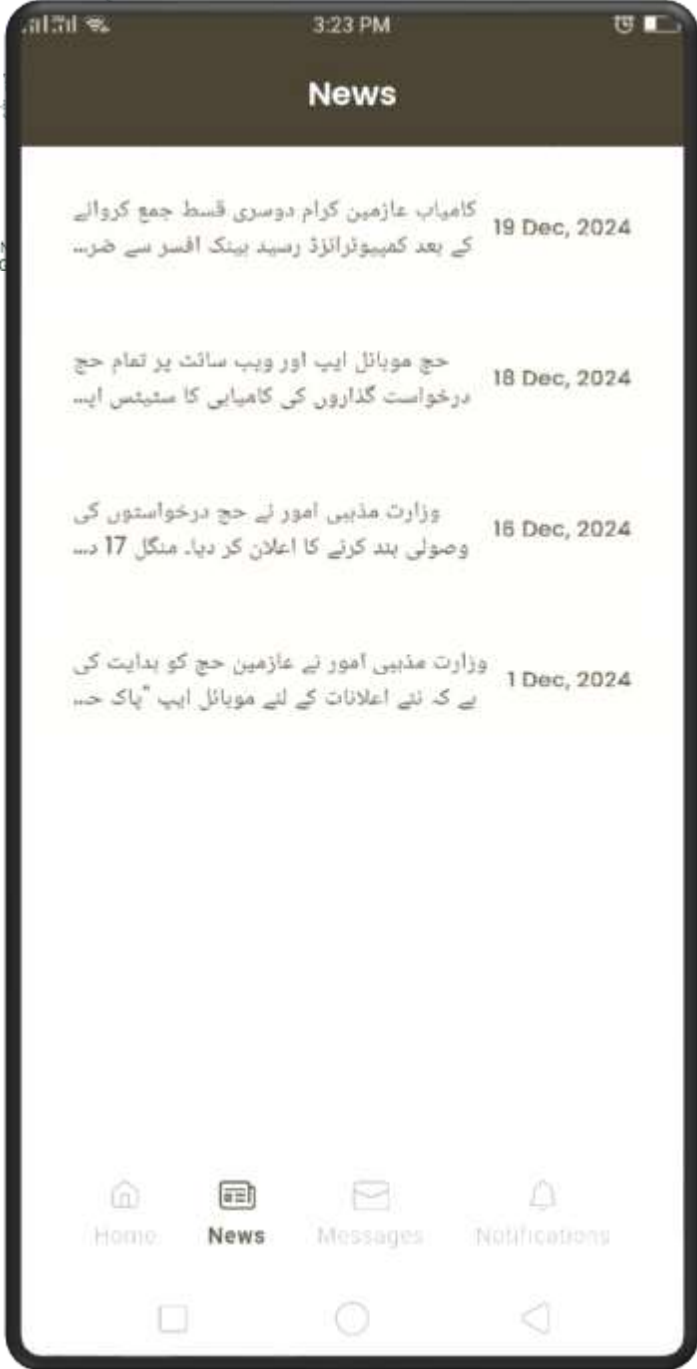 3:23 PM
News
کامیاب عازمین کرام دوسری قسط جمع کروانے
کے بعد کمپیوٹرائزڈ رسید بینک افسر سے ضر...
19 Dec, 2024
حج موبائل ایپ اور ویب سائٹ پر تمام حج
درخواست گذاروں کی کامیابی کا سٹیٹس اپ...
18 Dec, 2024
وزارت مذہبی امور نے حج درخواستوں کی
وصولی بند کرنے کا اعلان کر دیا۔ منگل 17 د...
16 Dec, 2024
وزارت مذہبی امور نے عازمین حج کو ہدایت کی
ہے کہ نئے اعلانات کے لئے موبائل ایپ "پاک حـ...
1 Dec, 2024
Home
News
Messages
Notifications